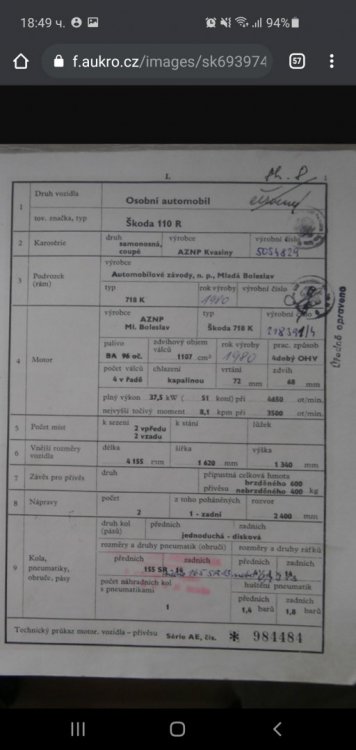 18:49 ч.
94%
f.aukro.cz/images/sk693974
57
I.
1
Druh vozidla
Osobní automobil
tov. značka, typ
Škoda 110 R
2
Karosérie
druh
samonosná,
coupé
výrobce
AZNP Kvasiny
výrobní číslo
5054829
3
Podvozek
(rám)
výrobce
Automobilové závody, n. p., Mladá Boleslav
typ
718 K
rok výroby
1980
výrobní číslo
4
Motor
výrobce
AZNP
Ml. Boleslav
typ
Škoda 718 K
výrobní číslo
palivo
BA 96 oč.
zdvihový objem
válců
1107 cm³
rok výroby
1980
prac. způsob
4dobý OHV
počet válců
4 v řadě
chlazení
kapalinou
vrtání
72 mm
zdvih
68 mm
plný výkon 37,5 kW ( 51 koní) při 4650 ot/min.
nejvyšší točivý moment 8,1 kpm při 3500 ot/min.
5
Počet míst
k sezení
2 vpředu
2 vzadu
k stání
lůžek
6
Vnější rozměry
vozidla
délka
4 155 mm
šířka
1 620 mm
výška
1 340 mm
7
Závěs pro přívěs
druh
přípustná celková hmota
brzděného 600
přívěsu nebrzděného 400 kg
8
Nápravy
počet
2
z toho poháněných
1 - zadní
rozvor
2 400 mm
9
Kola,
pneumatiky,
obruče, pásy
druh kol
(pásů)
předních
zadních
jednoduchá - disková
rozměry a druhy pneumatik (obručí)
rozměry a druhy ráfků
předních
zadních
předních
zadních
155 SR - 14
počet náhradních kol
s pneumatikami
1
huštění pneumatik
předních
1,4 barů
zadních
1,8 barů
Úředně opraveno
Technický průkaz motor. vozidla - přívěsu Série AE, čís. ✱ 984484